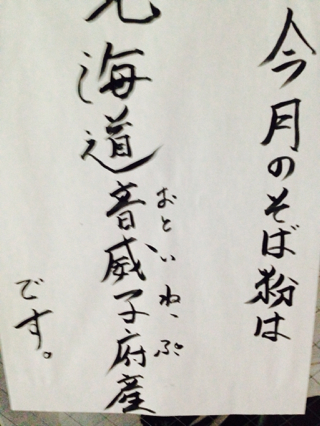 今月のそば粉は
北海道音威子府産
おといねっぷ
です。